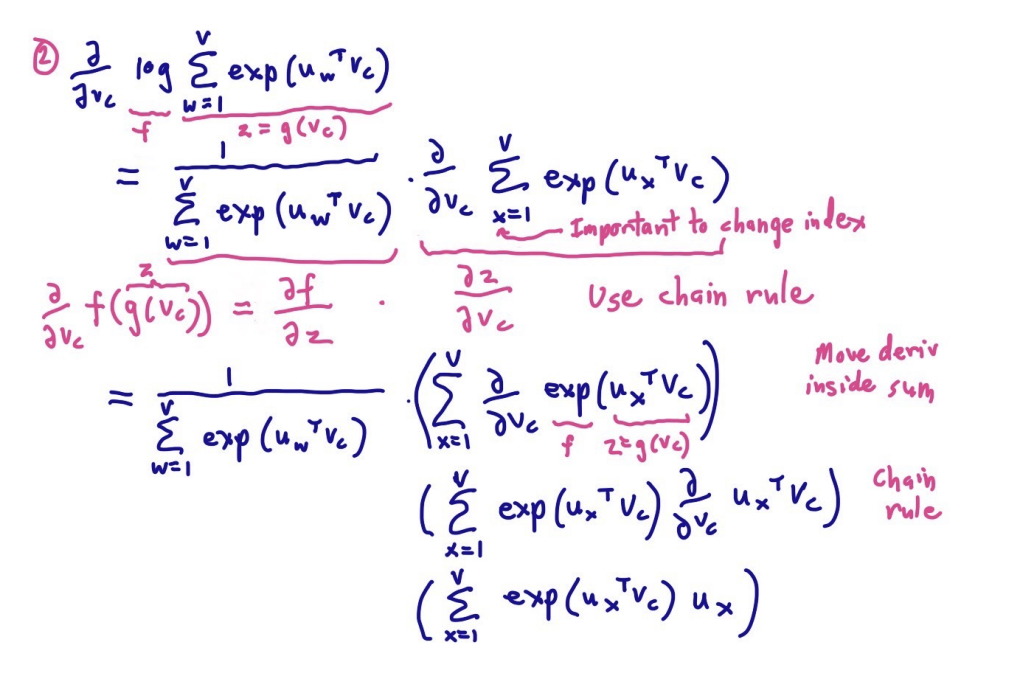 ② ∂/∂v_c log Σ_{w=1}^{V} exp(u_w^T v_c)
f z = g(v_c)
= 1 / Σ_{w=1}^{V} exp(u_w^T v_c) · ∂/∂v_c Σ_{x=1}^{V} exp(u_x^T v_c)
Important to change index
∂/∂v_c f(g(v_c)) = ∂f/∂z · ∂z/∂v_c Use chain rule
z
= 1 / Σ_{w=1}^{V} exp(u_w^T v_c) · (Σ_{x=1}^{V} ∂/∂v_c exp(u_x^T v_c))
Move deriv
inside sum
f z=g(v_c)
(Σ_{x=1}^{V} exp(u_x^T v_c) ∂/∂v_c u_x^T v_c)
Chain
rule
(Σ_{x=1}^{V} exp(u_x^T v_c) u_x)